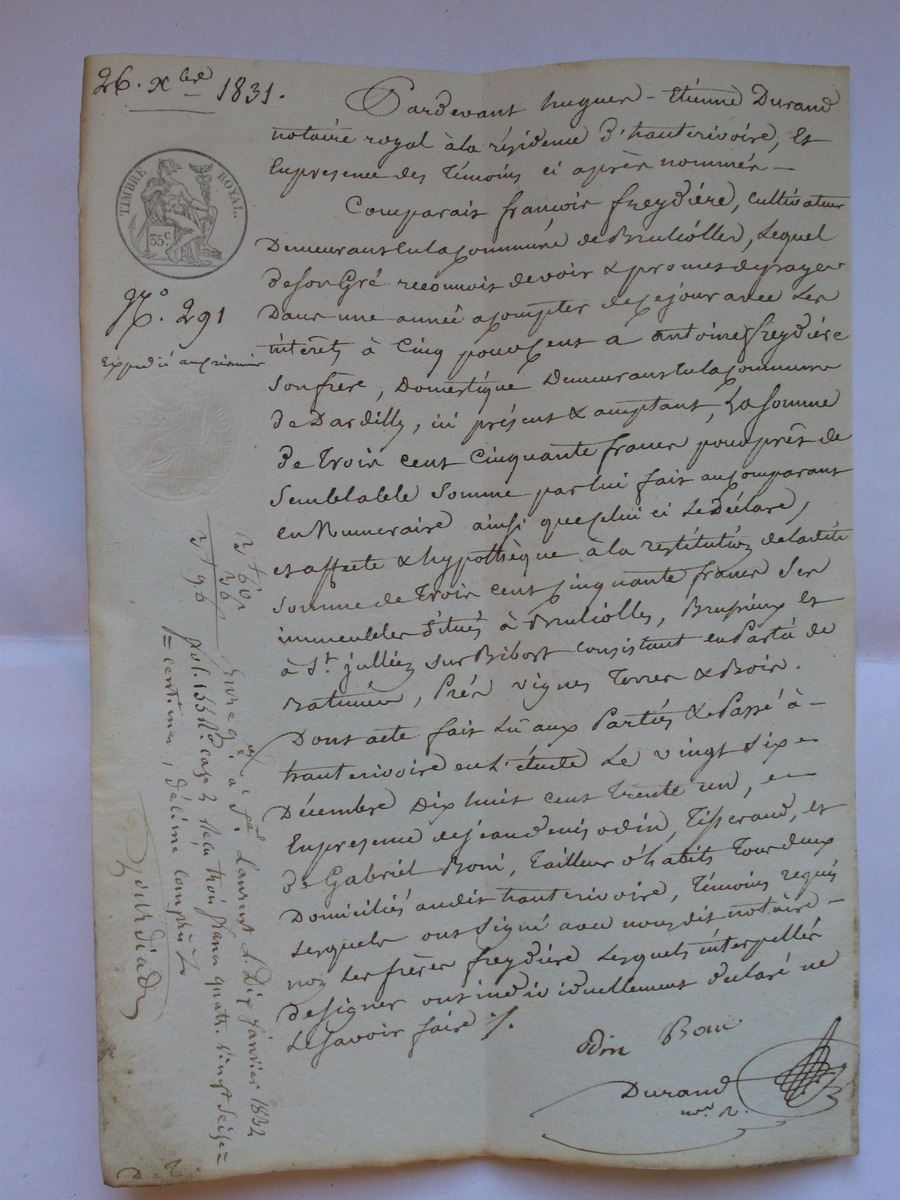 26. Xbre 1831.
TIMBRE ROYAL.
35c
No. 291
Expedié au créancier
Pardevant hugues - Etienne Durand
notaire royal à la résidence d'hauterivoire, Et
Enpresence des Témoins ci après nommés -
Comparait françois freydière, Cultivateur
Demeurant Enla Commune de Brullolles, Lequel
de son Gré reconnoit devoir & promet de payer
Dans une année acompter de ce jour avec Les
intérêts à Cinq pour Cent a antoine freydière
Son frère, Domestique Demeurant Enla Commune
de Dardilly, ici présent & acceptant, La Somme
de Trois cent Cinquante francs pour prêt de
Semblable Somme par lui fait au Comparant
en Numeraire ainsi que Celui ci Le Déclare,
et affecte & hypothèque à la restitution de ladite
Somme de Trois cent Cinquante francs Ses
immeubles Situés à Brullolles, Brussieux et
à St. jullien sur Bibost consistant en Partie de
Batimens, Prés vignes Terres & Bois.
Dont acte fait Lû aux Parties & Passé à -
hauterivoire en L'étude Le vingt Six -
Décembre Dix huit cent Trente un, en
Enpresence de jean denis odin, Tisserand, et
de Gabriel Boni, Tailleur d'habits Tous deux
Domiciliés audit hauterivoire, Témoins requis
Lesquels ont Signé avec nous dit notaire -
non Les frères freydière Lesquels interpellés
de signer ont individuellement déclaré ne
Le savoir faire ./.
odin Boni
Durand
nre. R.
3f 60c
36
3f 96
Enregé à St. Laurent L. Dix janvier 1832
fol. 155 Ro case 2 Reçu trois francs quatre vingt seize
centimes, décime compris